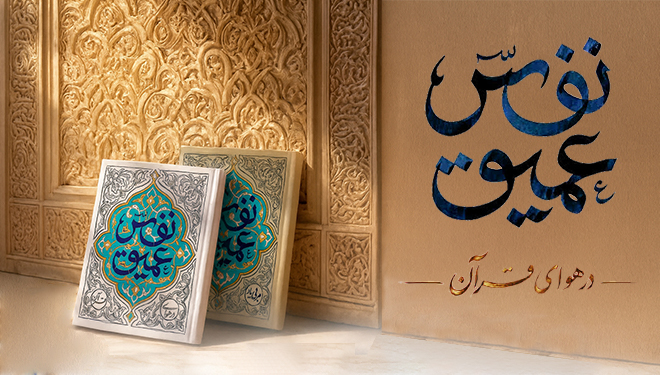 نفسّ
عمیق
در هوای قرآن
نفسّ
عمیق
نفسّ
عمیق